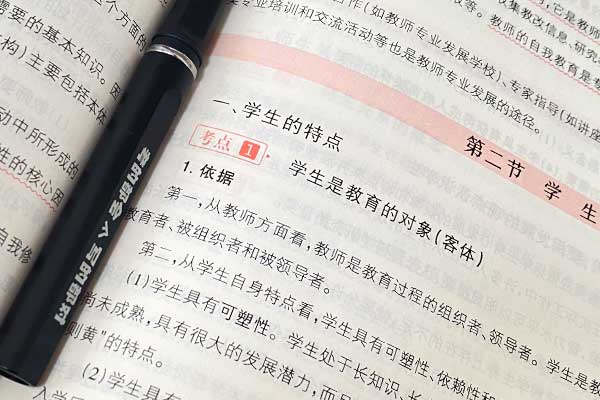 个方面的
需要的基本知识。
构)主要包括本体
动中所形成的
性的核心因
自我修
专业培训和交流活动等也是教师专业发展的途径。
作(如教师专业发展学校)、专家指导(如讲座
等。教师的自我教育是专
收集教改信息、研究
,它是教师
第二节 学 生
一、学生的特点
考点 1 学生是教育的对象(客体)
1. 依据
第一,从教师方面看,教师是教育过程的组织者、领导者。学生是教
育者、被组织者和被领导者。
第二,从学生自身特点看,学生具有可塑性、依赖性和
(1)学生具有可塑性。学生处于长知识、长
尚未成熟,具有很大的发展潜力,而且
则黄”的特点。
(2)学生具有